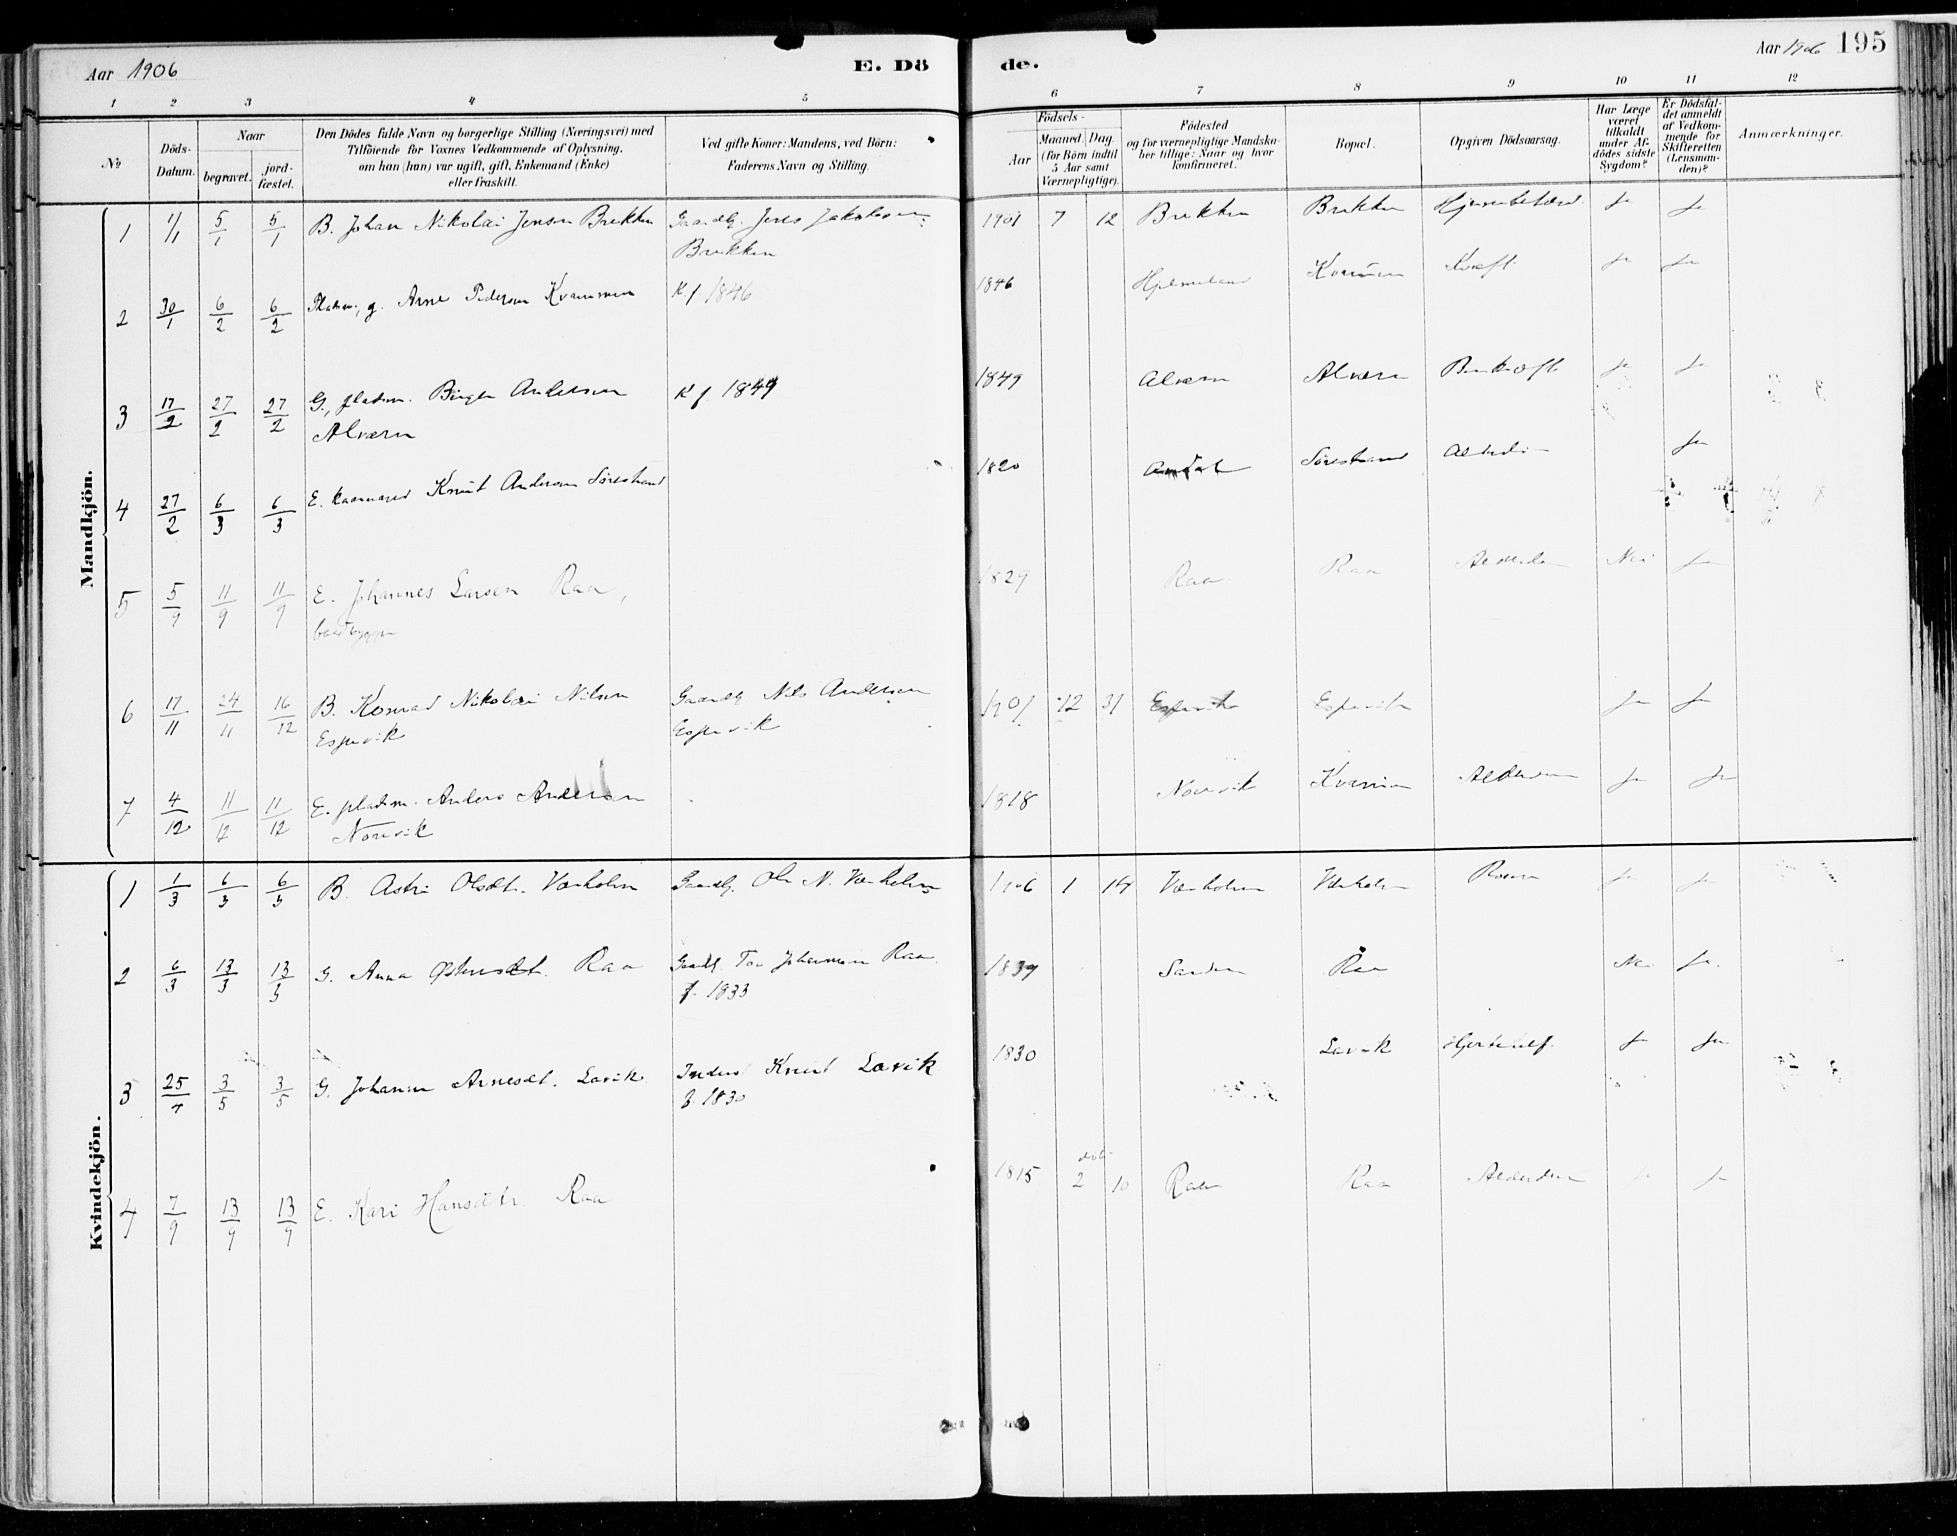 Aar 1906
E. Dö
de.
Aar 1906
195
1 2 3 4 5
6 7 8 9 10 11 12
No
Döds-Datum.
Naar
begravet.
jord-fæstet.
Den Dödes fulde Navn og borgerlige Stilling (Næringsvei) med
Tilföiende for Voxnes Vedkommende af Oplysning,
om han (hun) var ugift, gift, Enkemand (Enke)
eller fraskilt.
Ved gifte Koner: Mandens, ved Börn:
Faderens Navn og Stilling.
Födsels-
Aar
Maaned. Dag.
(for Börn indtil
5 Aar samt
Værnepligtige).
Födested
og for værnepligtige Mandska-
ber tillige: Naar og hvor
konfirmeret.
Bopæl.
Opgiven Dödsaarsag.
Har Læge
været
tilkaldt
under Af-
dödes sidste
Sygdom?
Er Dödsfal-
det anmeldt
af Vedkom-
mende for
Skifteretten
(Lensman-
den)?
Anmærkninger.
Mandkjön.
1 1/1 5/1 5/1 B. Johan Nikolai Jensen Brekken Gaardb. Jens Jakobsen 1901 7 12 Brekken Brekken Ja Ja
Brekken
2 30/1 6/2 6/2 g. Arne Pedersen Kvammen Kf 1846 1846 Hjelmeland Ja Ja
3 17/2 27/2 27/2 G., pladsm. Birger Andersen Kf 1849 1849 Alværn Alværn Ja Ja
Alværn
4 27/2 6/3 6/3 E. kaarmand Knut Andersen Sörestrand 1820 Sörestrand Ja
5 5/9 11/9 11/9 E. Johannes Larsen Raa, 1829 Raa Raa Nei Ja
baadbygger
6 17/11 24/11 16/12 B. Konrad Nikolai Nilsen Gaardb Nils Andersen 1901 12 31 Espevik Espevik Ja Ja
Espevik Espevik
7 4/12 11/12 11/12 E. pladsm. Anders Andersen 1818 Norevik Ja Ja
Norevik
Kvindekjön.
1 1/3 6/3 6/3 B. Astri Olsdtr. Værholm Gaardb. Ole N. Værholm 1906 1 14 Værholm Værholm Ja Ja
2 6/3 13/3 13/3 G. Anna Raa Gaardb. Tor Johannesen Raa 1839 Raa Nei Ja.
f. 1833
3 25/4 3/5 3/5 G. Johanna Arnesdt. Lavik Knut Lavik 1830 Lavik Ja Ja
f. 1830
4 7/9 13/9 13/9 E. Kari Hansdtr. Raa 1815 2 10 Raa Raa Ja Ja